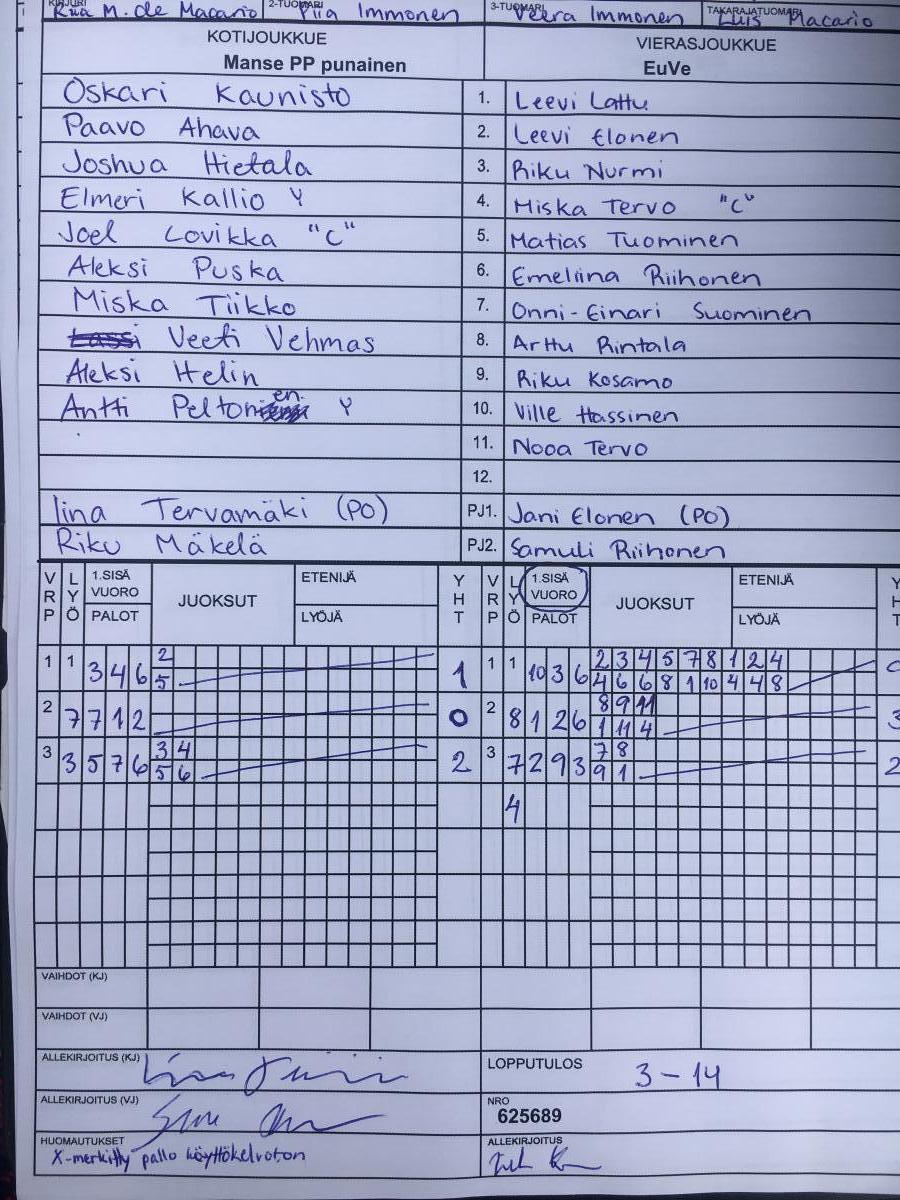 KIRJURI 2-TUOMARI 3-TUOMARI TAKARAJATUOMARI
Kiia M. de Macario Piia Immonen Veera Immonen Luis Macario
KOTIJOUKKUE VIERASJOUKKUE
Manse PP punainen EuVe
Oskari Kaunisto 1. Leevi Lattu
Paavo Ahava 2. Leevi Elonen
Joshua Hietala 3. Riku Nurmi
Elmeri Kallio Y 4. Miska Tervo "C"
Joel Lovikka "C" 5. Matias Tuominen
Aleksi Puska 6. Emeliina Riihonen
Miska Tiikko 7. Onni-Einari Suominen
Veeti Vehmas 8. Arttu Rintala
Aleksi Helin 9. Riku Kosamo
Antti Peltonen Y 10. Ville Hassinen
11. Nooa Tervo
12.
Iina Tervamäki (PO) PJ1. Jani Elonen (PO)
Riku Mäkelä PJ2. Samuli Riihonen
VRP LYÖ 1.SISÄ VUORO PALOT JUOKSUT ETENIJÄ LYÖJÄ YHT VRP LYÖ 1.SISÄ VUORO PALOT JUOKSUT ETENIJÄ LYÖJÄ YHT
1 1 3 4 6 2 1 1 1 10 3 6 2 3 4 5 7 8 1 2 4
5 4 6 6 8 1 10 4 4 8
2 7 7 1 2 0 2 8 1 2 6 8 9 11 3
1 11 4
3 3 5 7 6 3 4 2 3 7 2 9 3 7 8 2
5 6 9 1
4
VAIHDOT (KJ)
VAIHDOT (VJ)
ALLEKIRJOITUS (KJ) LOPPUTULOS 3-14
ALLEKIRJOITUS (VJ) NRO 625689
HUOMAUTUKSET ALLEKIRJOITUS
X-merkitty pallo käyttökelvoton